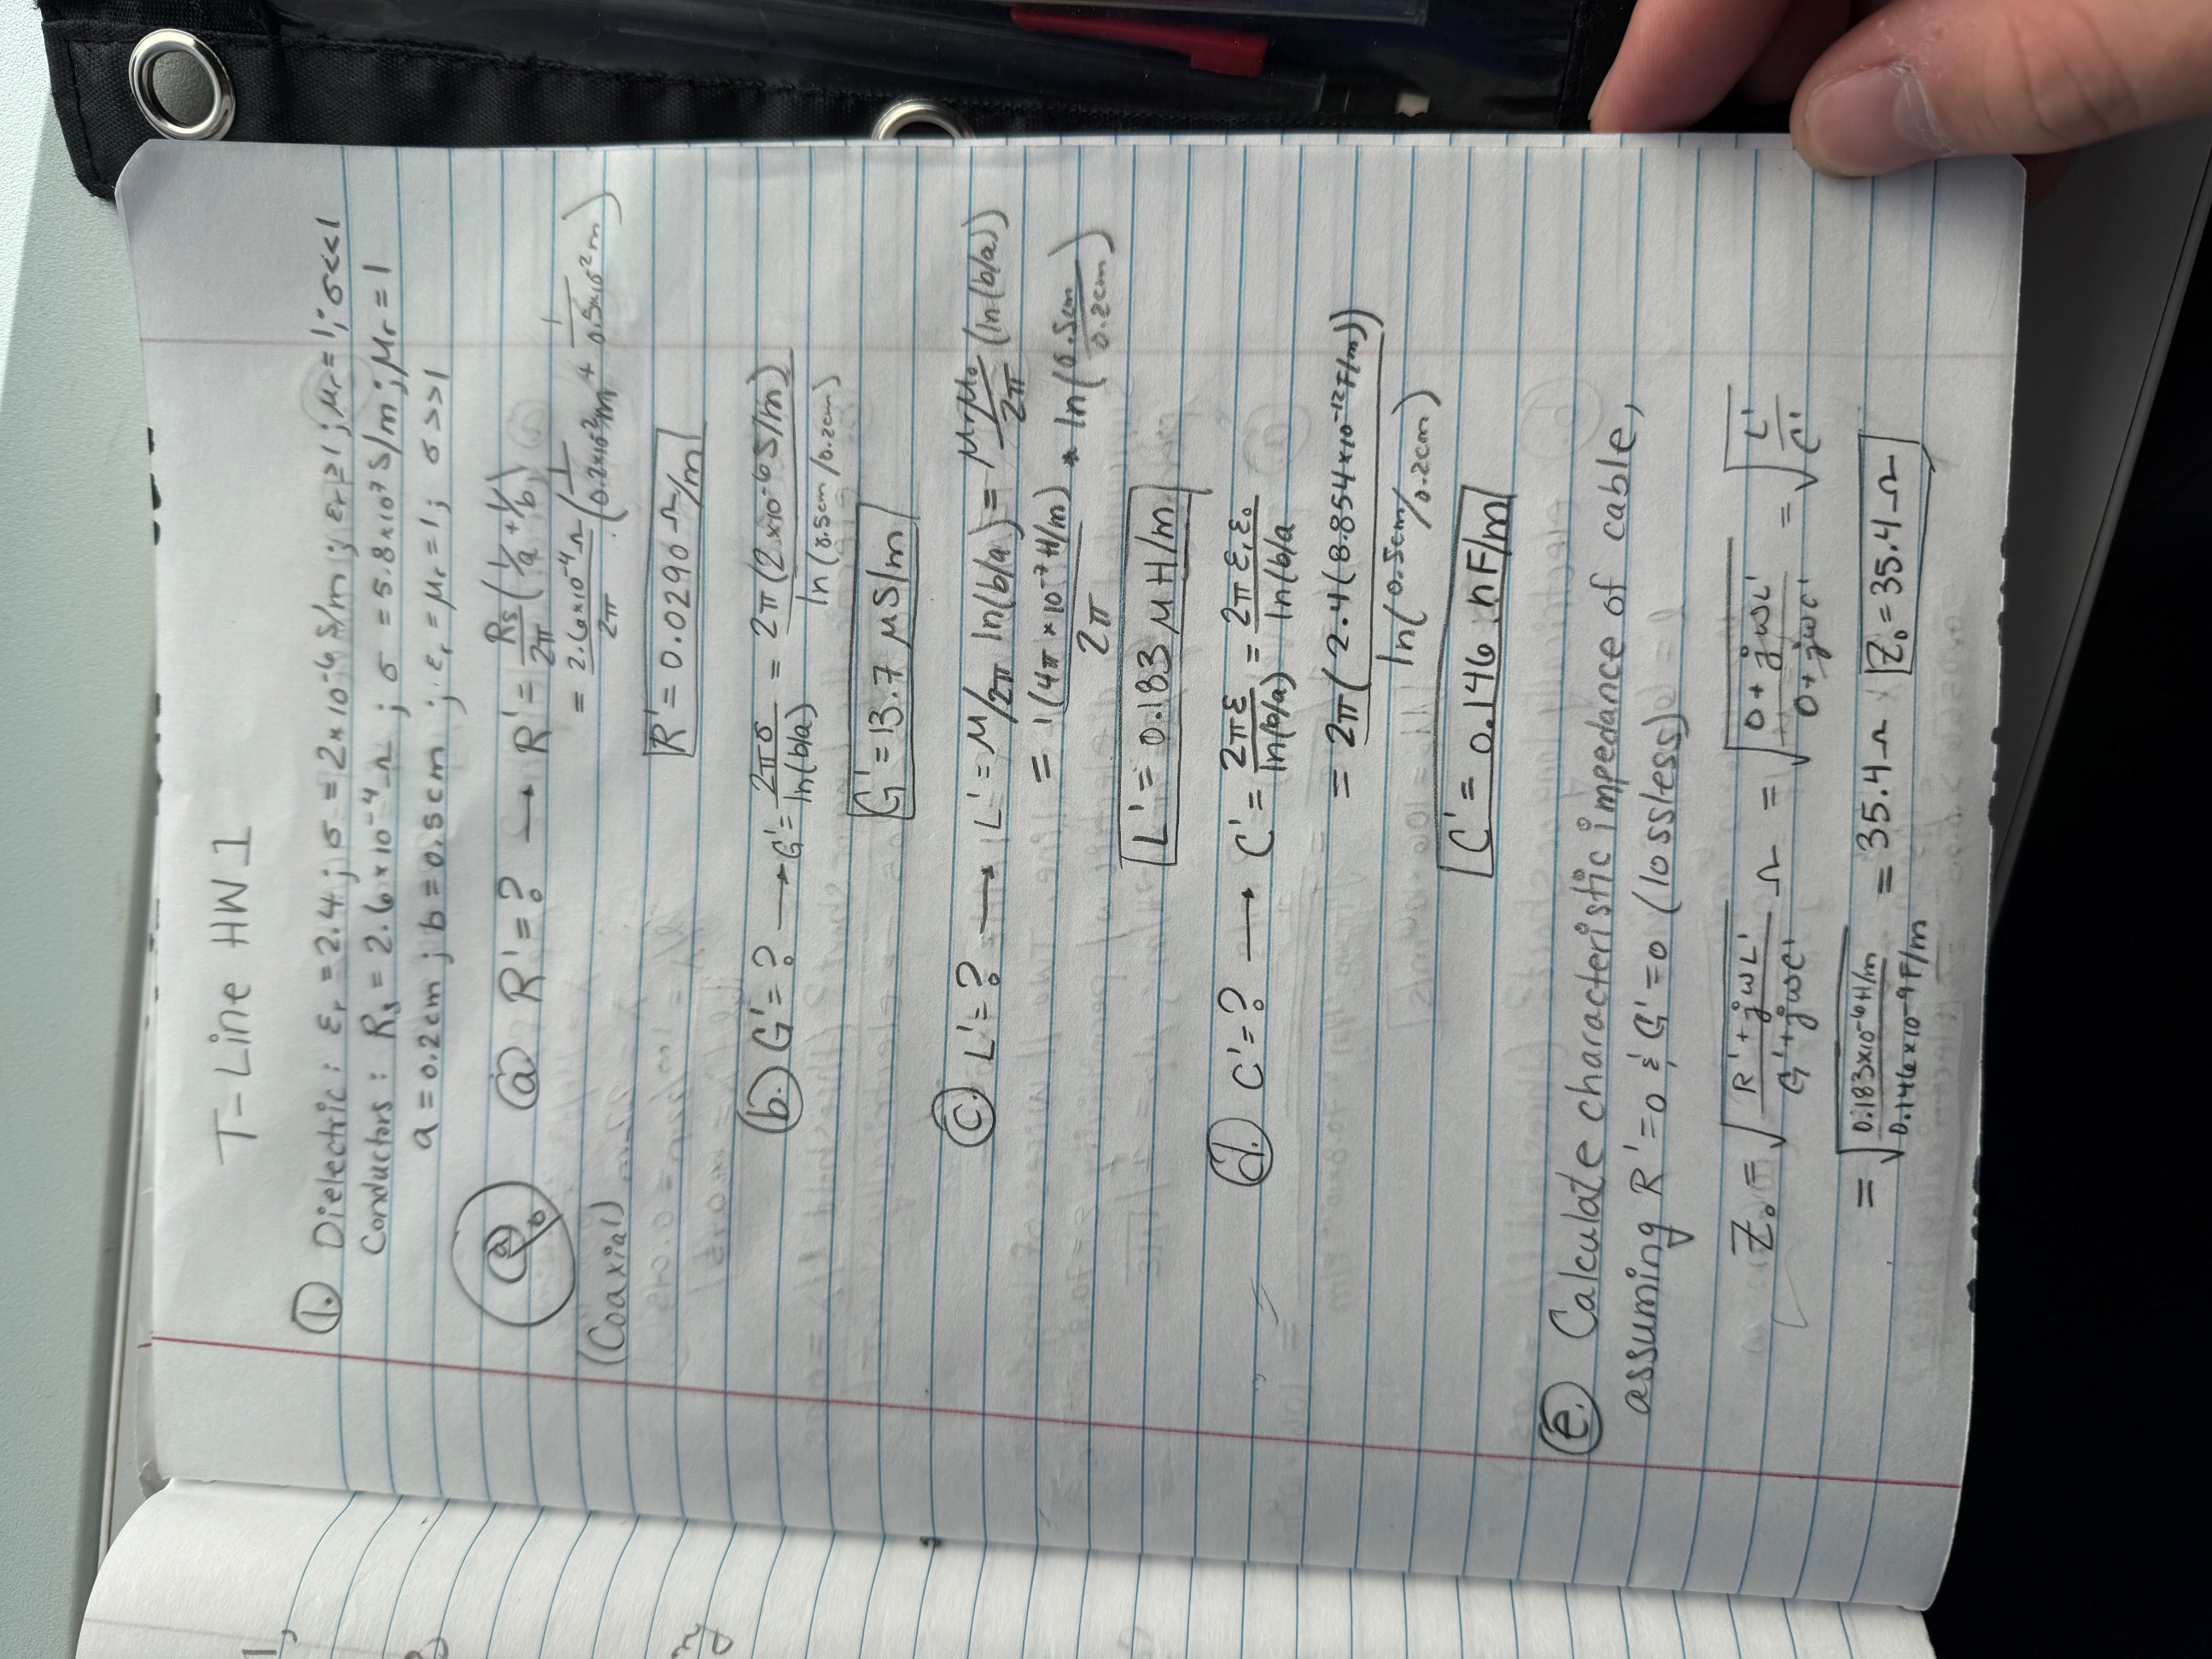 T-Line HW 1
1. Dielectric: εr = 2.4; σ = 2×10⁻⁶ S/m; εr≥1; μr = 1; σ<<1
Conductors: Rs = 2.6×10⁻⁴ Ω; σ = 5.8×10⁷ S/m; μr = 1
a = 0.2cm; b = 0.5cm; εr = μr = 1; σ >>1
(Coaxial)
a R' = ? → R' = Rs/2π (1/a + 1/b)
= 2.6×10⁻⁴Ω/2π · (1/0.2×10⁻²m + 1/0.5×10⁻²m)
R' = 0.0290 Ω/m
b. G' = ? → G' = 2πσ/ln(b/a) = 2π(2×10⁻⁶ S/m)/ln(0.5cm/0.2cm)
G' = 13.7 μS/m
c. L' = ? → L' = μ/2π ln(b/a) = μrμ₀/2π (ln(b/a))
= 1(4π×10⁻⁷ H/m)/2π * ln(0.5cm/0.2cm)
L' = 0.183 μH/m
d. C' = ? → C' = 2πε/ln(b/a) = 2πεrε₀/ln(b/a
= 2π(2.4(8.854×10⁻¹² F/m))/ln(0.5cm/0.2cm)
C' = 0.146 nF/m
e. Calculate characteristic impedance of cable,
assuming R' = 0 & G' = 0 (lossless)
Z₀ = √(R'+jωL'/G'+jωC') Ω = √(0+jωL'/0+jωC') = √(L'/C')
= √(0.183×10⁻⁶H/m/0.146×10⁻⁹F/m) = 35.4 Ω Z₀ = 35.4 Ω